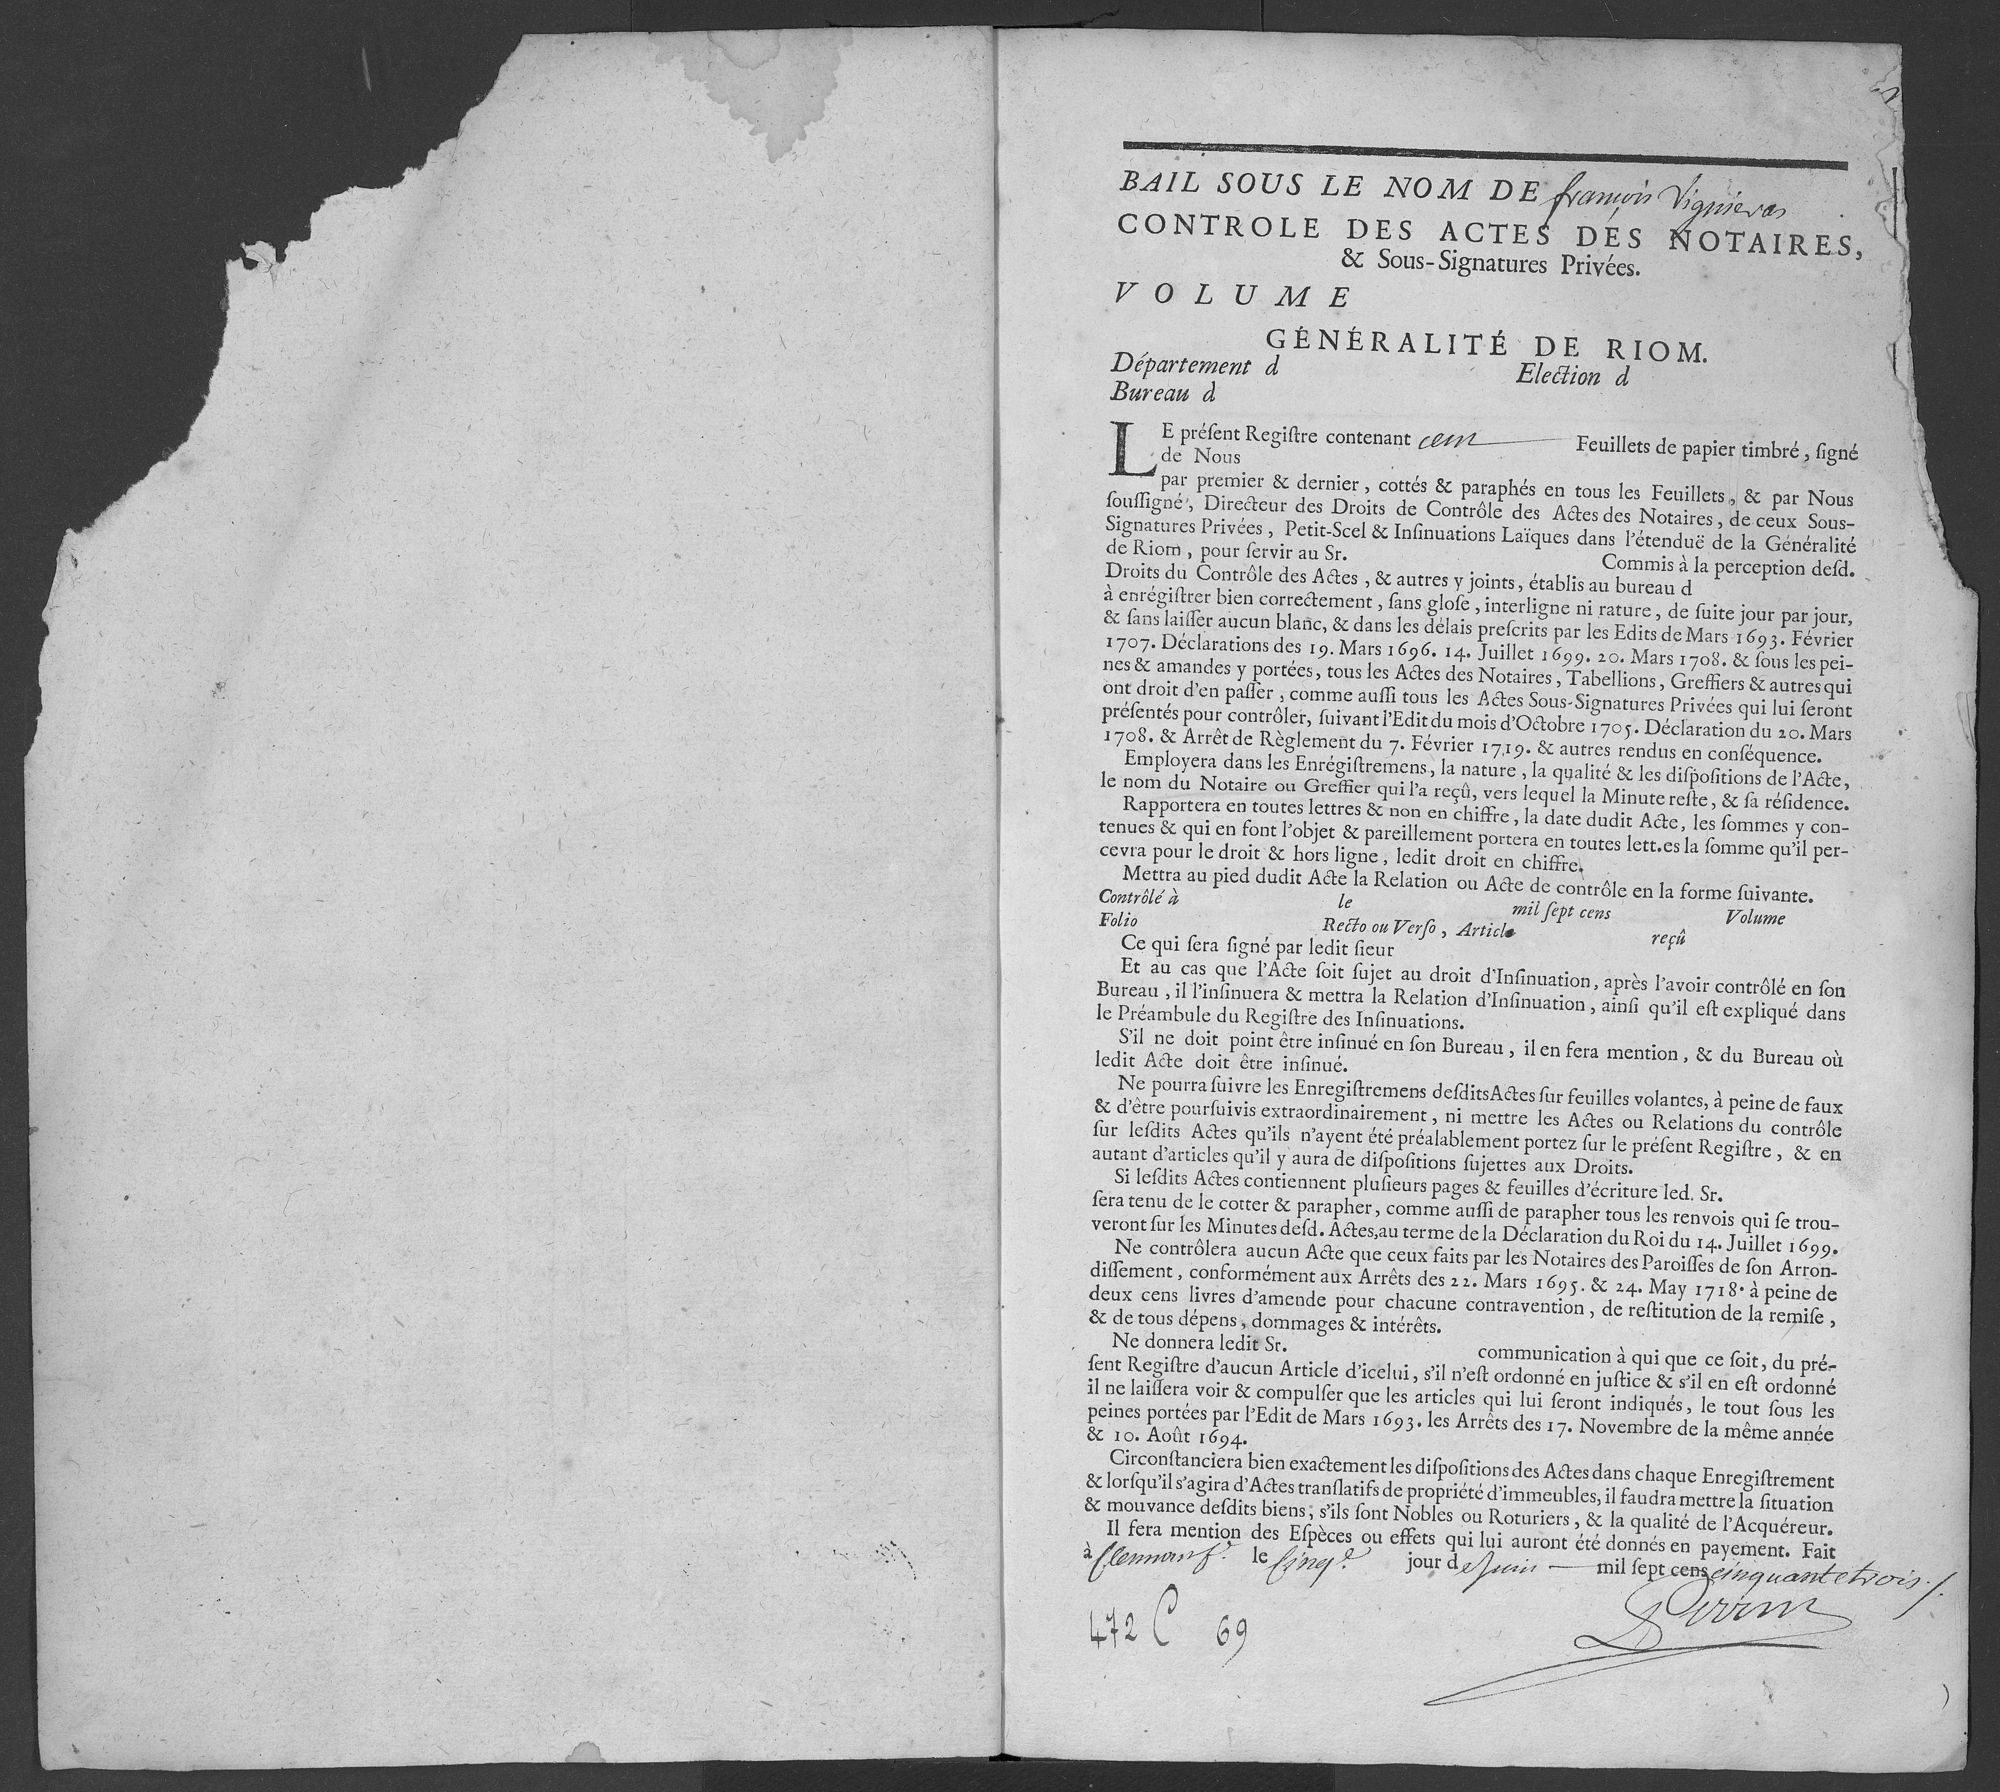 BAIL SOUS LE NOM DE françois Vigneras
CONTROLE DES ACTES DES NOTAIRES,
& Sous-Signatures Privées.
VOLUME
GÉNÉRALITÉ DE RIOM.
Département d Election d
Bureau d
LE préſent Regiſtre contenant cent Feuillets de papier timbré, ſigné
de Nous
par premier & dernier, cottés & paraphés en tous les Feuillets, & par Nous
ſouſſigné, Directeur des Droits de Contrôle des Actes des Notaires, de ceux Sous-
Signatures Privées, Petit-Scel & Inſinuations Laïques dans l'étenduë de la Généralité
de Riom, pour ſervir au Sr. Commis à la perception deſd.
Droits du Contrôle des Actes, & autres y joints, établis au bureau d
à enrégiſtrer bien correctement, ſans gloſe, interligne ni rature, de ſuite jour par jour,
& ſans laiſſer aucun blanc, & dans les délais preſcrits par les Edits de Mars 1693. Février
1707. Déclarations des 19. Mars 1696. 14. Juillet 1699. 20. Mars 1708. & ſous les pei-
nes & amandes y portées, tous les Actes des Notaires, Tabellions, Greffiers & autres qui
ont droit d'en paſſer, comme auſſi tous les Actes Sous-Signatures Privées qui lui ſeront
préſentés pour contrôler, ſuivant l'Edit du mois d'Octobre 1705. Déclaration du 20. Mars
1708. & Arrêt de Règlement du 7. Février 1719. & autres rendus en conſéquence.
Employera dans les Enrégiſtremens, la nature, la qualité & les diſpoſitions de l'Acte,
le nom du Notaire ou Greffier qui l'a reçû, vers lequel la Minute reſte, & ſa réſidence.
Rapportera en toutes lettres & non en chiffre, la date dudit Acte, les ſommes y con-
tenues & qui en font l'objet & pareillement portera en toutes lett.es la ſomme qu'il per-
cevra pour le droit & hors ligne, ledit droit en chiffre.
Mettra au pied dudit Acte la Relation ou Acte de contrôle en la forme ſuivante.
Contrôlé à le mil ſept cens Volume
Folio Recto ou Verſo, Article reçû
Ce qui ſera ſigné par ledit ſieur
Et au cas que l'Acte ſoit ſujet au droit d'Inſinuation, après l'avoir contrôlé en ſon
Bureau, il l'inſinuera & mettra la Relation d'Inſinuation, ainſi qu'il eſt expliqué dans
le Préambule du Regiſtre des Inſinuations.
S'il ne doit point être inſinué en ſon Bureau, il en fera mention, & du Bureau où
ledit Acte doit être inſinué.
Ne pourra ſuivre les Enregiſtremens deſdits Actes ſur feuilles volantes, à peine de faux
& d'être pourſuivis extraordinairement, ni mettre les Actes ou Relations du contrôle
ſur leſdits Actes qu'ils n'ayent été préalablement portez ſur le préſent Regiſtre, & en
autant d'articles qu'il y aura de diſpoſitions ſujettes aux Droits.
Si leſdits Actes contiennent pluſieurs pages & feuilles d'écriture led. Sr.
ſera tenu de le cotter & parapher, comme auſſi de parapher tous les renvois qui ſe trou-
veront ſur les Minutes deſd. Actes, au terme de la Déclaration du Roi du 14. Juillet 1699.
Ne contrôlera aucun Acte que ceux faits par les Notaires des Paroiſſes de ſon Arron-
diſſement, conformément aux Arrêts des 22. Mars 1695. & 24. May 1718. à peine de
deux cens livres d'amende pour chacune contravention, de reſtitution de la remiſe,
& de tous dépens, dommages & intérêts.
Ne donnera ledit Sr. communication à qui que ce ſoit, du pré-
ſent Regiſtre d'aucun Article d'icelui, s'il n'eſt ordonné en juſtice & s'il en eſt ordonné
il ne laiſſera voir & compulſer que les articles qui lui ſeront indiqués, le tout ſous les
peines portées par l'Edit de Mars 1693. les Arrêts des 17. Novembre de la même année
& 10. Août 1694.
Circonſtanciera bien exactement les diſpoſitions des Actes dans chaque Enregiſtrement
& lorſqu'il s'agira d'Actes tranſlatifs de propriété d'immeubles, il faudra mettre la ſituation
& mouvance deſdits biens, s'ils ſont Nobles ou Roturiers, & la qualité de l'Acquéreur.
Il fera mention des Eſpèces ou effets qui lui auront été donnés en payement. Fait
à Clermont fd. le Cinqe. jour de Juin mil ſept cens cinquante trois ./.
Perrin
472 C 69